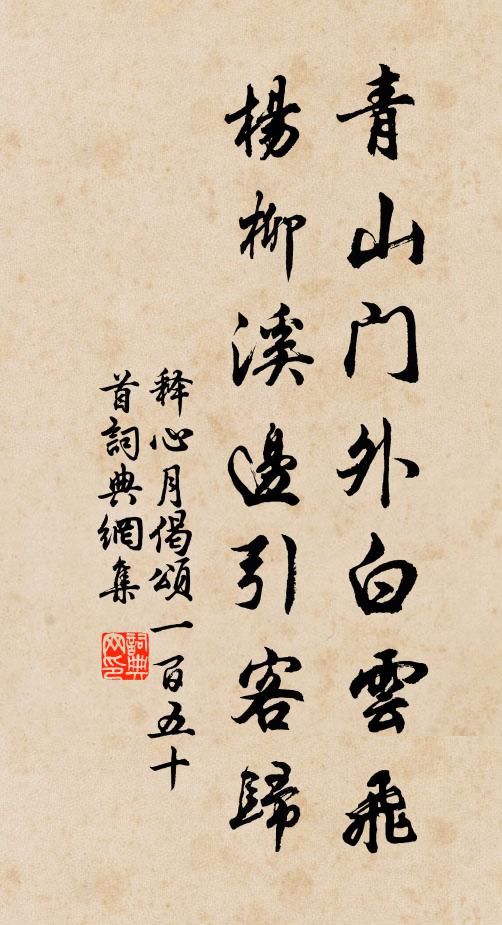 青山門外白雲飛
楊柳溪邊引客歸
释心月偈頌一百五十
首詞典網集
詞典
网印